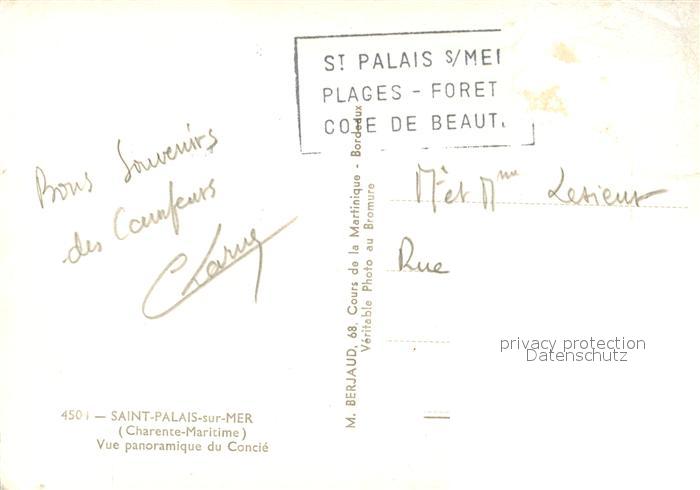 ST PALAIS S/MER
PLAGES - FORET
COTE DE BEAUT
Bons Souvenirs
des Campeurs
Mr et Mme Lesieur
Rue
privacy protection
Datenschutz
M. BERJAUD, 68, Cours de la Martinique - Bordeaux
Véritable Photo au Bromure
4501 — SAINT-PALAIS-sur-MER
(Charente-Maritime)
Vue panoramique du Concié